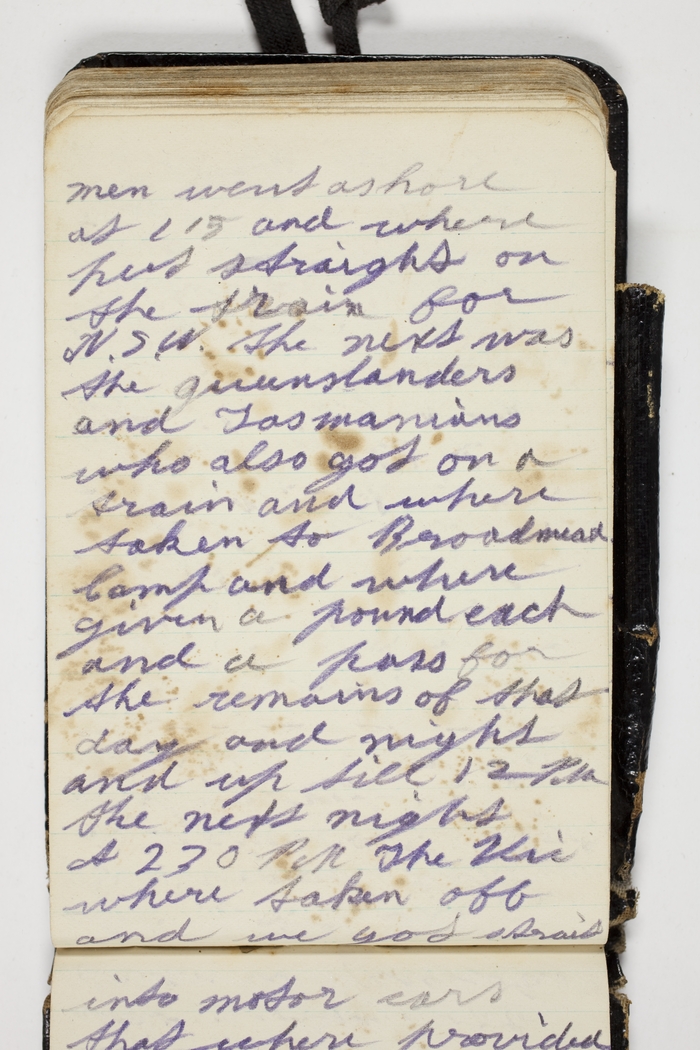 men went ashore
at 1 15 and where
put straight on
the train for
N.S.W. The next was
the queenslanders
and Tasmanians
who also got on a
train and where
taken to Broadmead
Camp and where
given a pound each
and a pass for
the remains of that
day and night
and up till 12 PM
the next night
At 230 PM The Vic
where taken off
and we got strait
into motor cars
that where provided